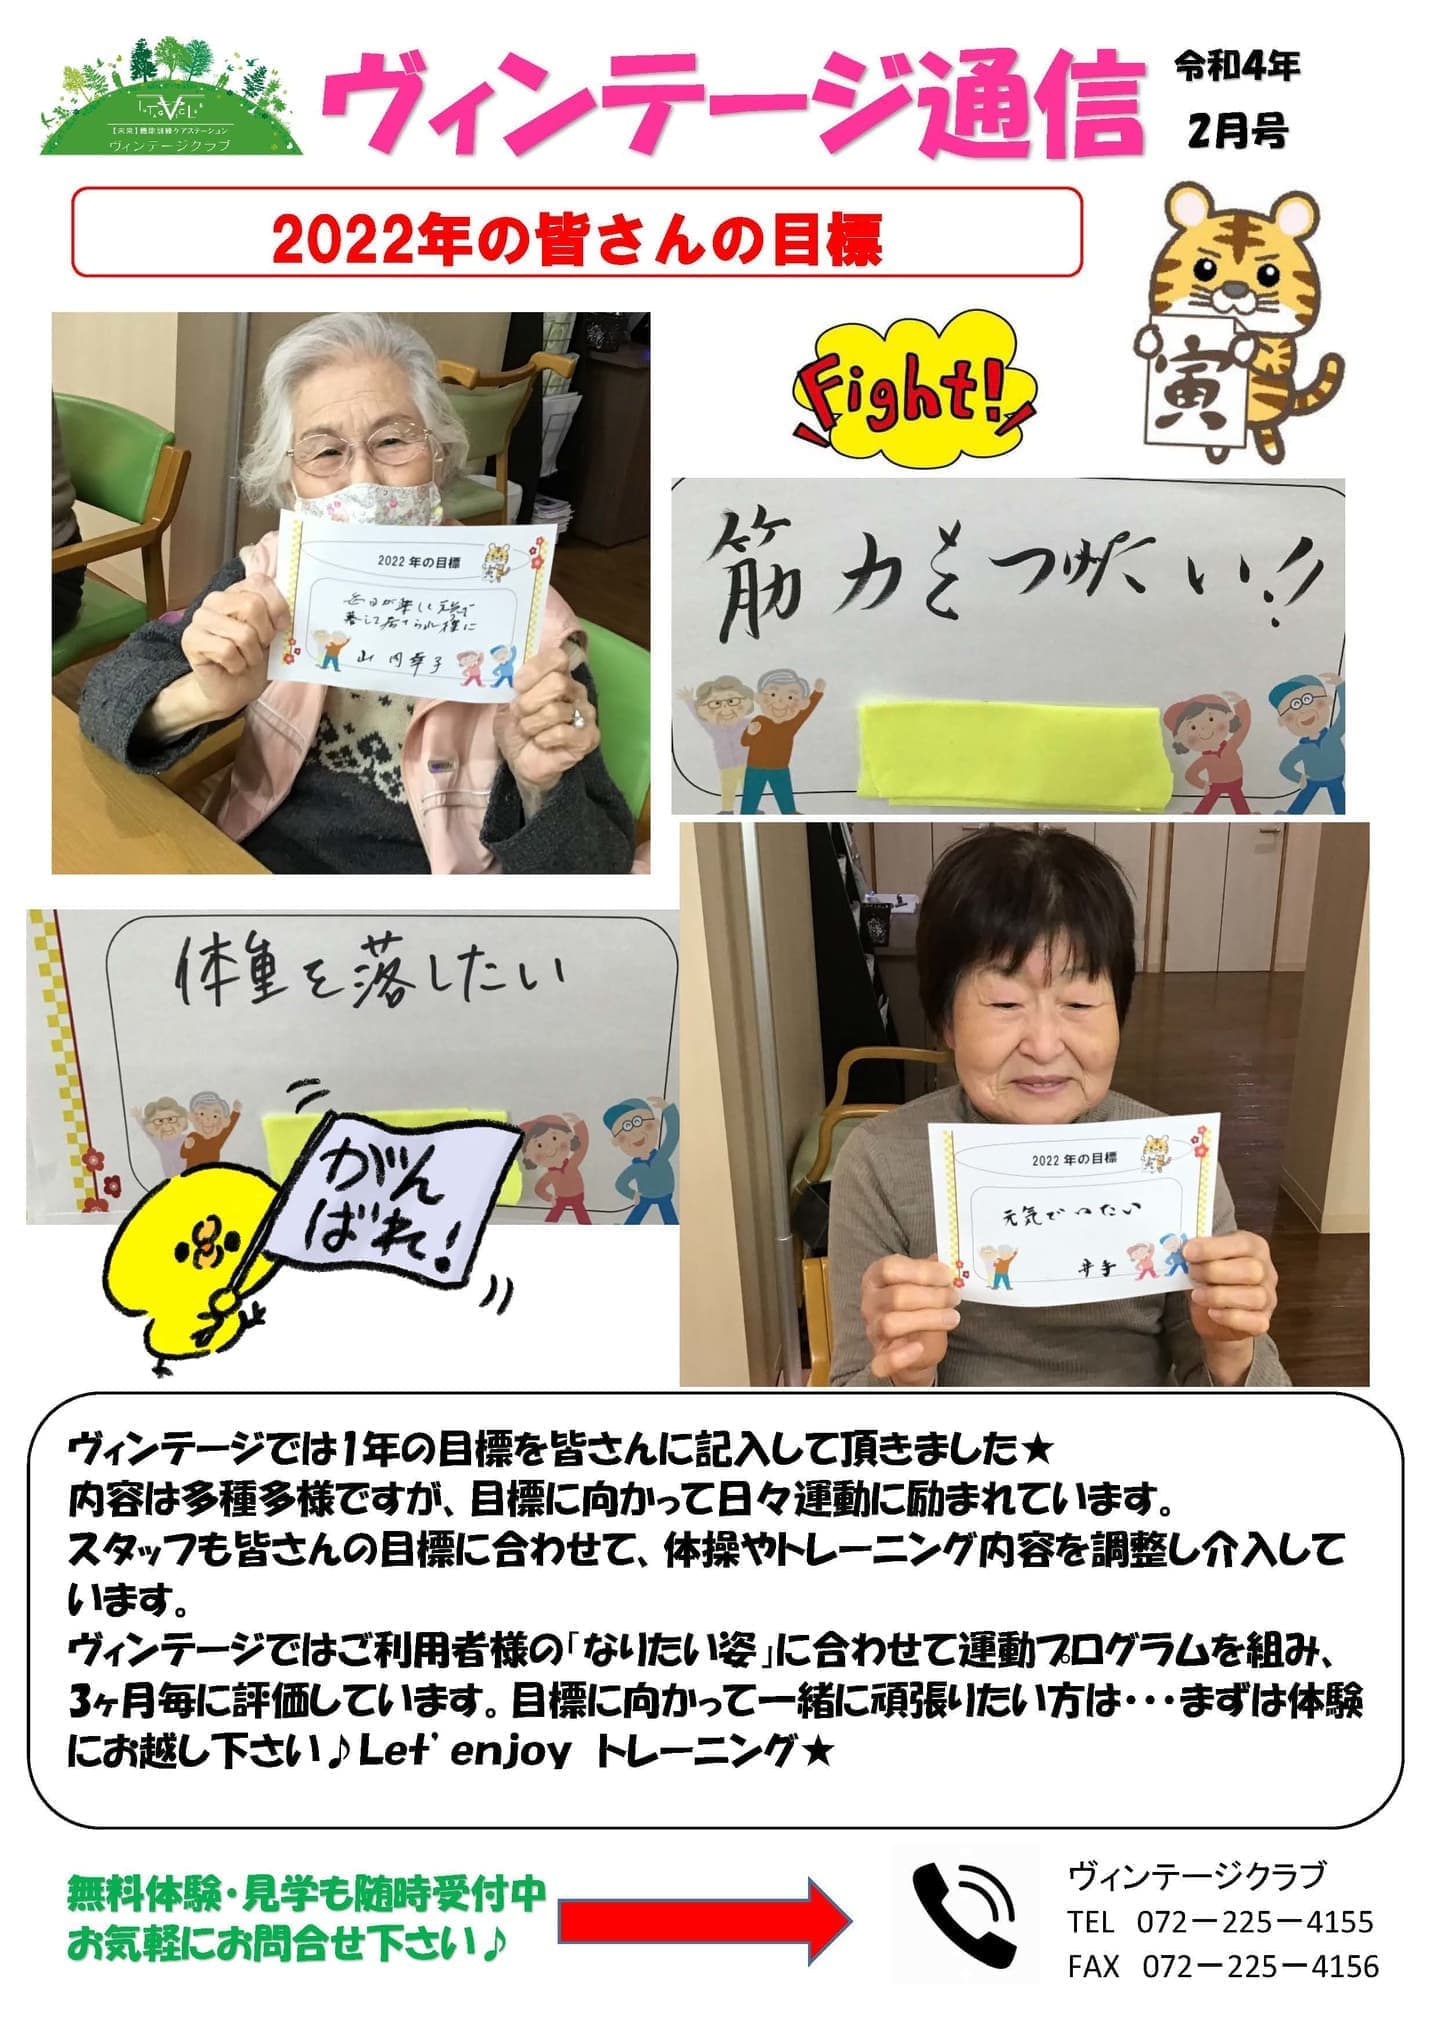 【未来】機能訓練ケアステーション
ヴィンテージクラブ
ヴィンテージ通信
令和4年
2月号
2022年の皆さんの目標
Fight!
寅
2022年の目標
毎日が楽しく元気で
暮して居られる様に
筋力をつけたい!!
体重を落したい
がん
ばれ!
2022年の目標
元気でいたい
ヴィンテージでは1年の目標を皆さんに記入して頂きました★
内容は多種多様ですが、目標に向かって日々運動に励まれています。
スタッフも皆さんの目標に合わせて、体操やトレーニング内容を調整し介入して
います。
ヴィンテージではご利用者様の「なりたい姿」に合わせて運動プログラムを組み、
3ヶ月毎に評価しています。目標に向かって一緒に頑張りたい方は・・・まずは体験
にお越し下さい♪Let' enjoy トレーニング★
無料体験・見学も随時受付中
お気軽にお問合せ下さい♪
ヴィンテージクラブ
TEL 072-225-4155
FAX 072-225-4156